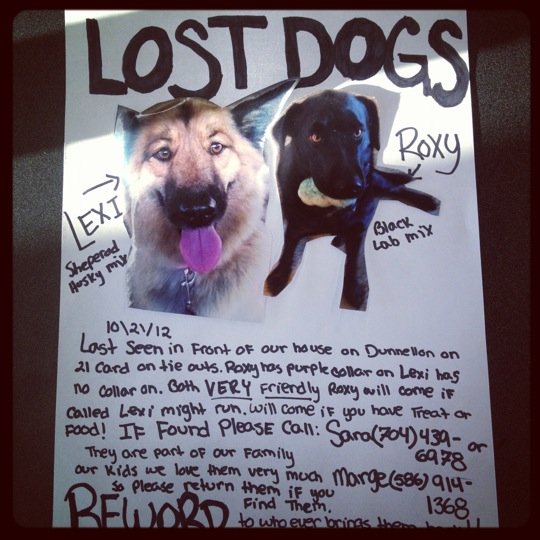 LOST DOGS
LEXI
Sheperad
Husky mix
ROXY
Black
Lab mix
10/21/12
Last Seen in Front of our house on Dunnellon on
21 Card on tie outs. Roxy has purple collar on Lexi has
no collar on. Both VERY Friendly Roxy will come if
called Lexi might run. will come if you have Treat or
Food! IF Found PLEASE CALL: Sara (704) 439-
6978 or
They are part of our Family
our Kids we love them very much Marge (586) 914-
1368
so Please return them if you
Find Them.
REWORD to who ever brings them